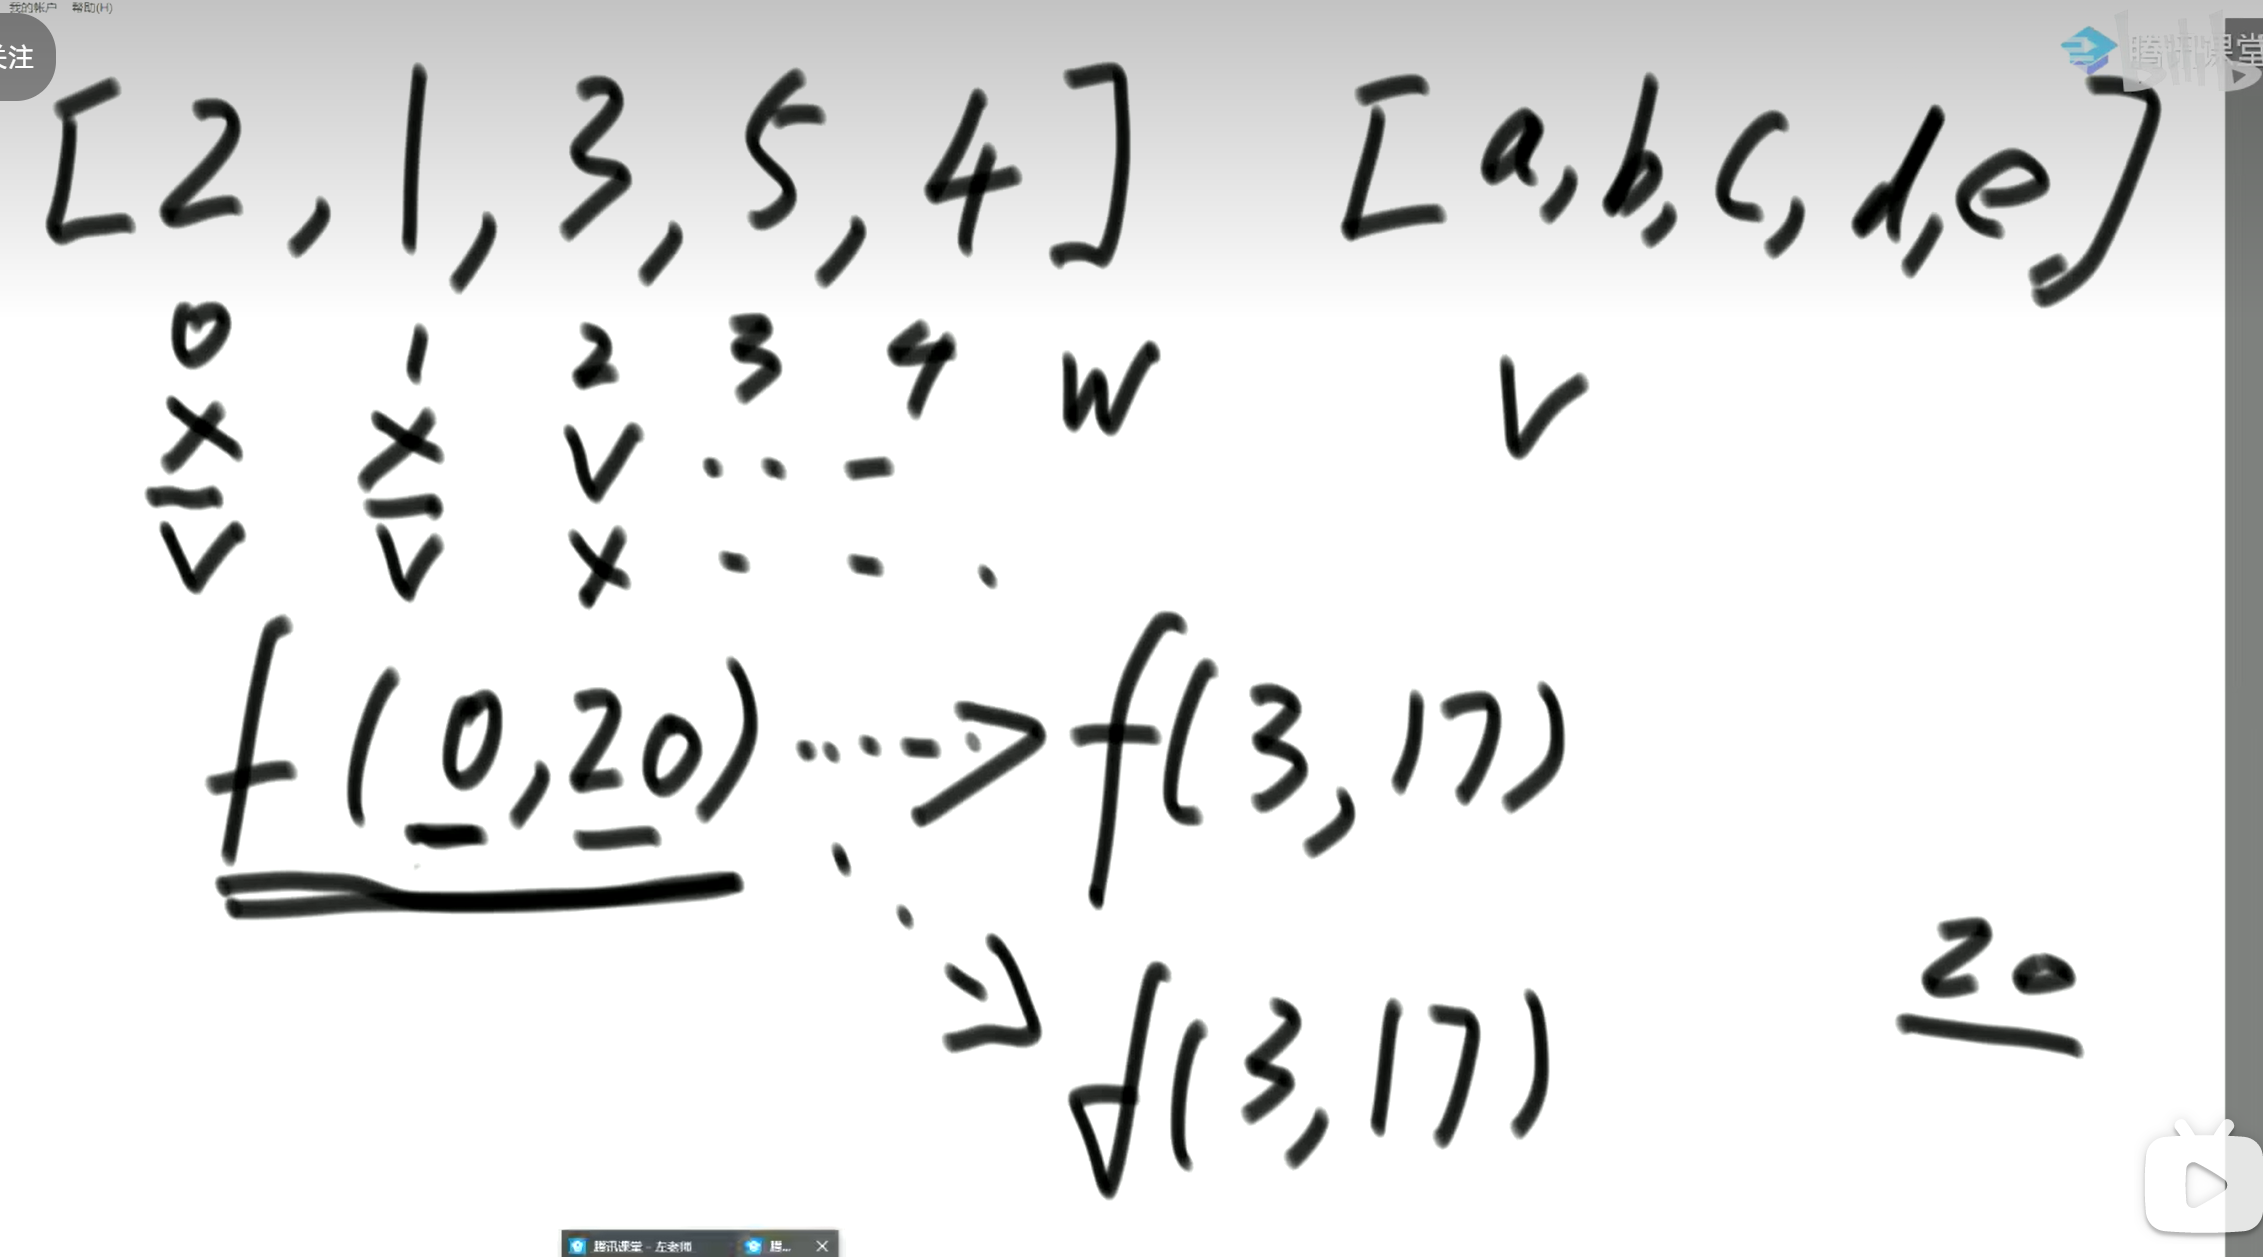 我的帐户 帮助(H)
关注
腾讯课堂
bilibili
[2, 1, 3, 5, 4] [a, b, c, d, e]
0 1 2 3 4 W V
X X V . . -
V V X - - .
f(0,20) ....-> f(3,17)
f(3,17)
20
腾讯课堂 - 左老师 腾...